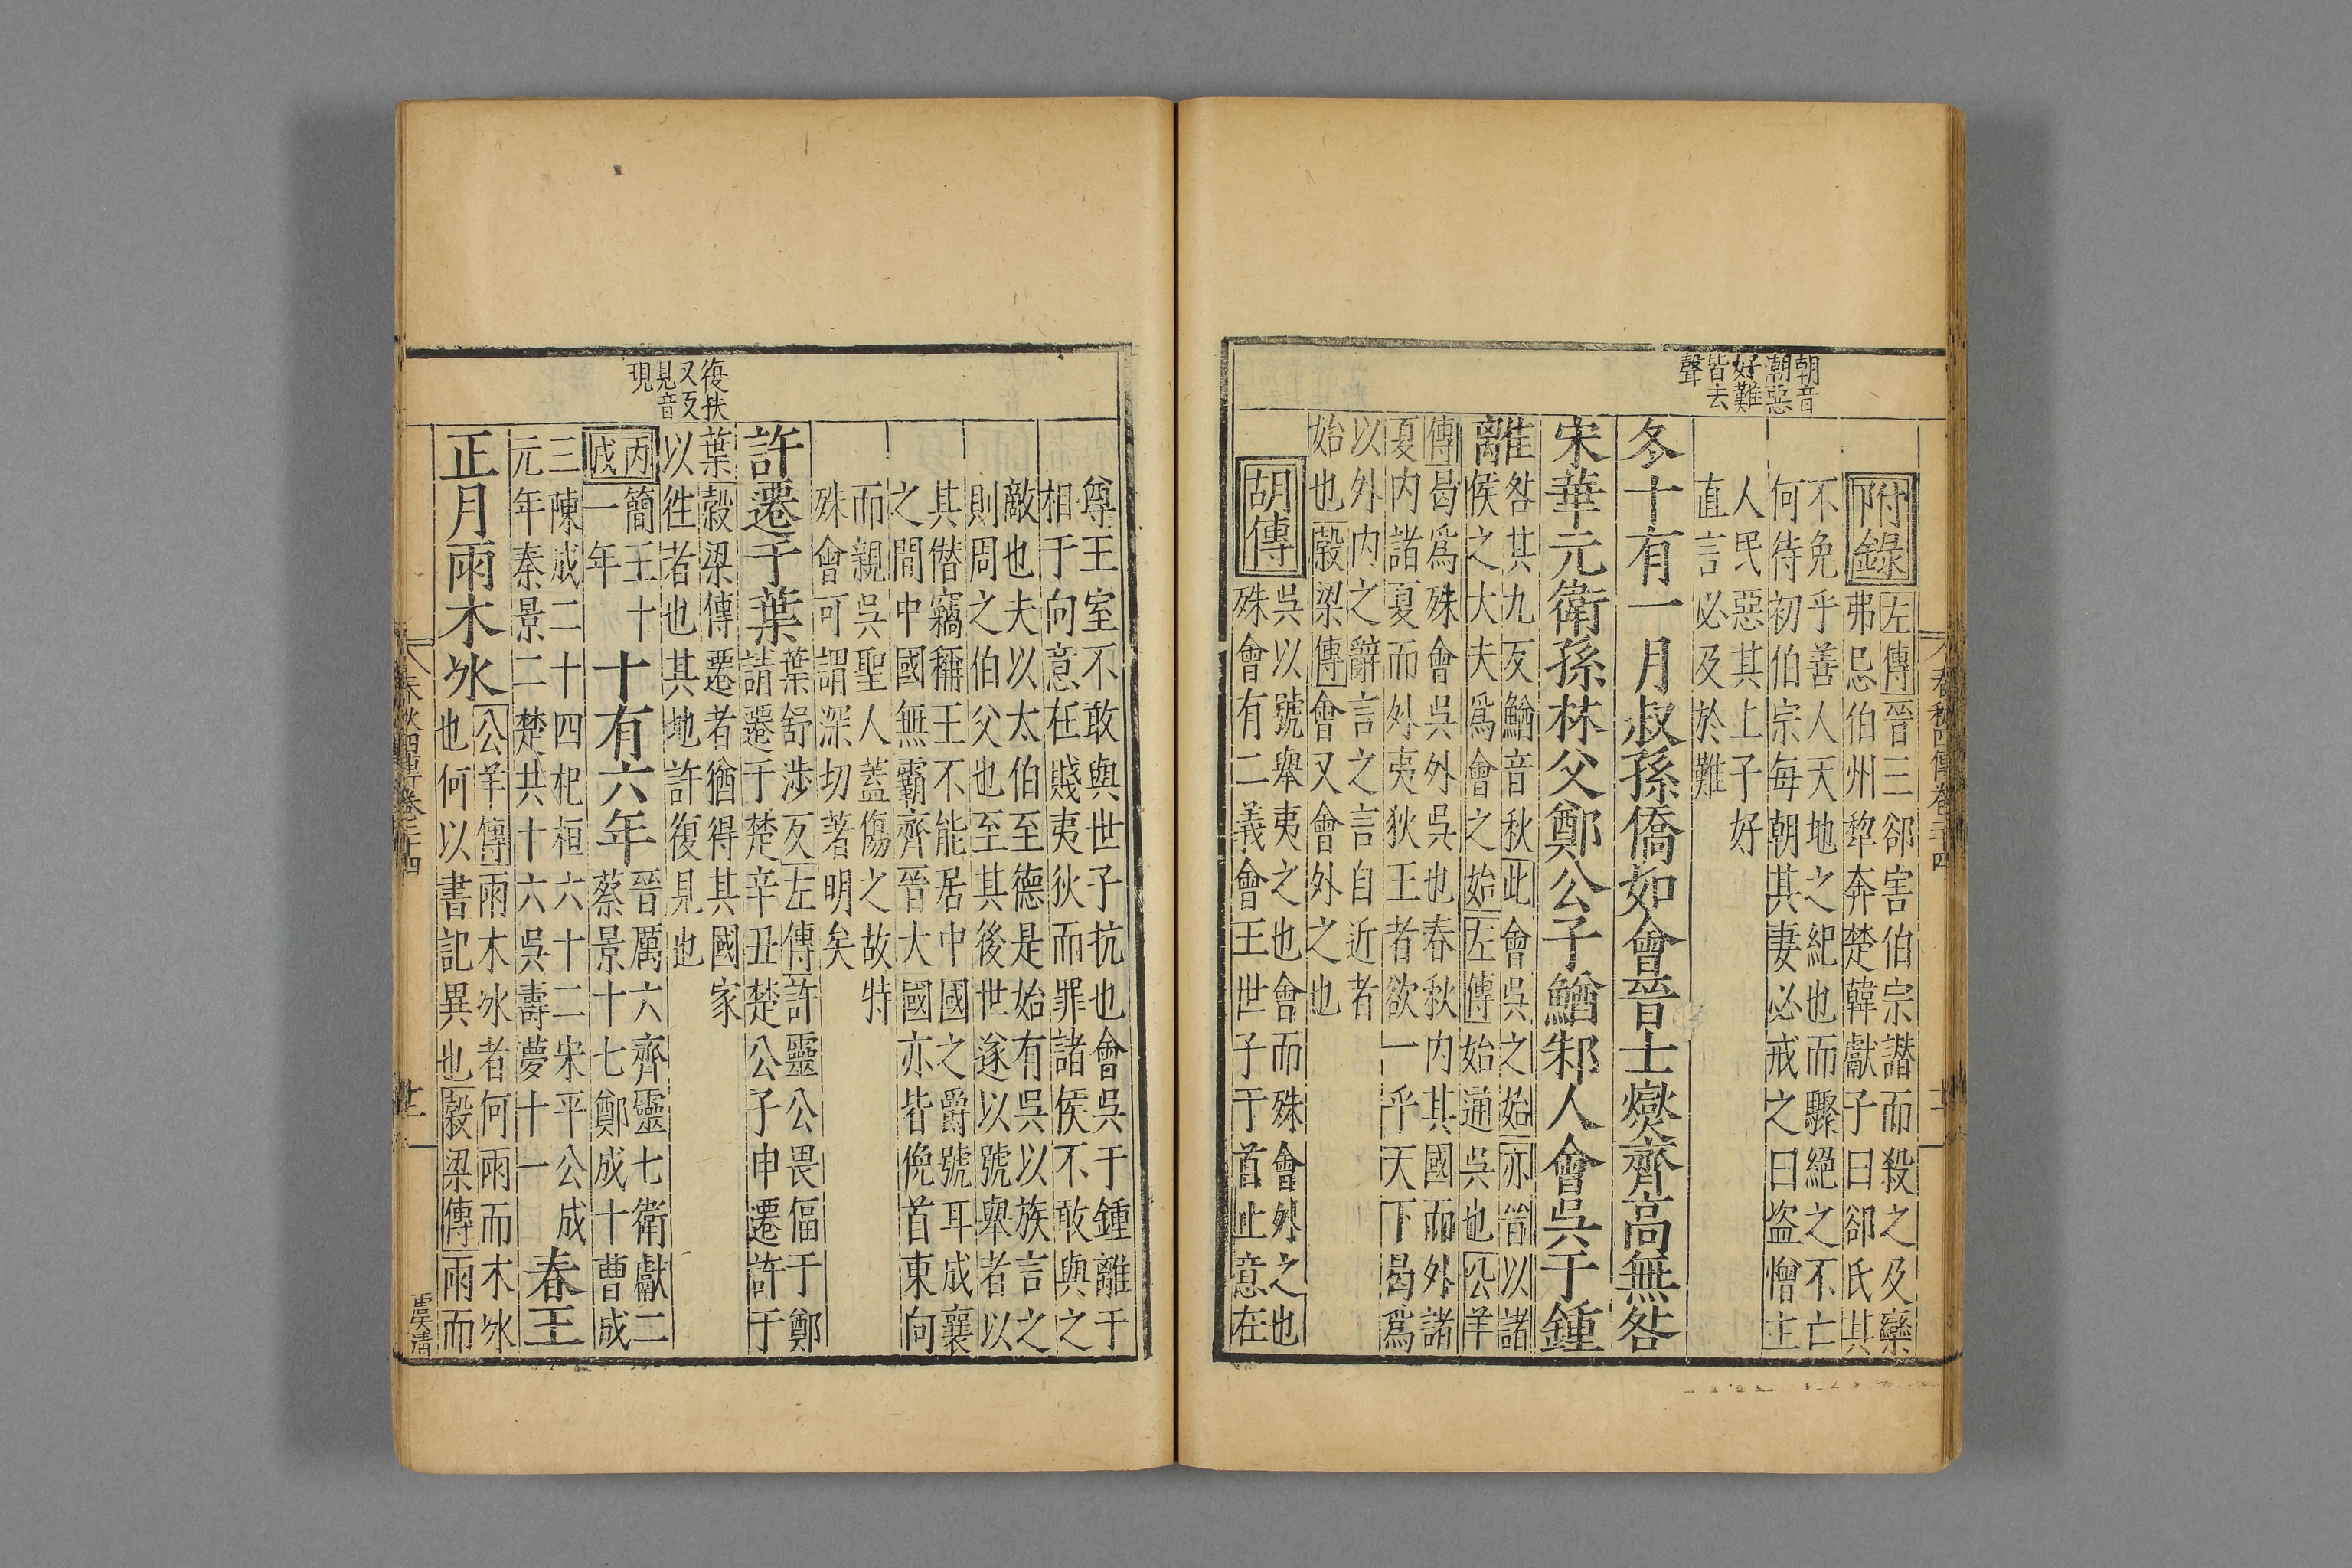 春秋四傳卷二十四
朝音
潮惡
好難
皆去
聲
附錄
左傳晉三郤害伯宗譖而殺之及欒
弗忌伯州犂奔楚韓獻子曰郤氏其
不免乎善人天地之紀也而驟絕之不亡
何待初伯宗每朝其妻必戒之曰盗憎主
人民惡其上子好
直言必及於難
冬十有一月叔孫僑如會晉士燮齊高無咎
宋華元衛孫林父鄭公子鰌邾人會吳于鍾
離
咎其九反鰌音秋此會吳之始亦皆以諸
侯之大夫爲會之始左傳始通吳也公羊
傳曷爲殊會吳外吳也春秋内其國而外諸
夏内諸夏而外夷狄王者欲一乎天下曷爲
以外内之辭言之言自近者
始也穀梁傳會又會外之也
胡傳
吳以號舉夷之也會而殊會外之也
殊會有二義會王世子于首止意在
復扶
又反
見音
現
尊王室不敢與世子抗也會吳于鍾離于
相于向意在賤夷狄而罪諸侯不敢與之
敵也夫以太伯至德是始有吳以族言之
則周之伯父也至其後世遂以號舉者以
其僭竊稱王不能居中國之爵號耳成襄
之間中國無霸齊晉大國亦皆俛首東向
而親吳聖人蓋傷之故特
殊會可謂深切著明矣
許遷于葉
葉舒涉反左傳許靈公畏偪于鄭
請遷于楚辛丑楚公子申遷許于
葉穀梁傳遷者猶得其國家
以徃者也其地許復見也
丙戌
簡王十
一年
十有六年
晉厲六齊靈七衛獻二
蔡景十七鄭成十曹成
三陳成二十四杞桓六十二宋平公成
元年秦景二楚共十六吳壽夢十一
春王
正月雨木冰
公羊傳雨木冰者何雨而木冰
也何以書記異也穀梁傳雨而
春秋四傳卷二十四
廿一